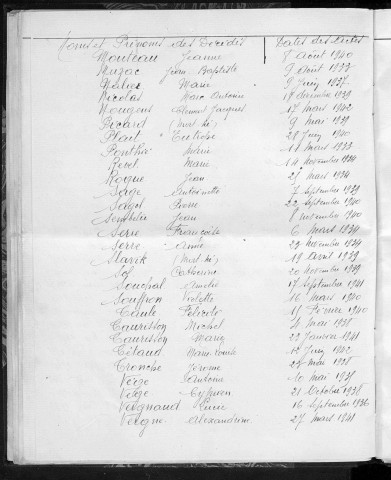 Noms et Prénoms des Décédés Dates des Décès
Monteau Jeanne 8 août 1940
Muzac Jean Baptiste 9 août 1933
Marie 9 Juin 1937
Nicolas Marc Antoine 18 décembre 1939
Nougens Clément Jacques 17 mars 1942
Picard (Mort-né) 9 mai 1939
Plart 28 Juin 1940
Ponthier Marie 11 mars 1933
Revel Marie 14 novembre 1934
Roque Jean 21 mars 1934
Sage Antoinette 7 septembre 1939
22 septembre 1940
Jean 8 novembre 1940
Serre Françoise 6 mars 1934
Serre Aimée 23 novembre 1934
Slavik (Mort-né) 19 avril 1939
Sol Catherine 20 novembre 1939
Souchal Amélie 17 septembre 1941
Souffron Violette 16 mars 1940
15 Février 1940
Michel 4 mai 1938
22 Janvier 1941
Marie Louise 12 Juin 1942
Tronche Jérôme 22 mai 1938
Verge Antoine 10 mai 1938
Verge Cyprien 21 octobre 1938
Vergnaud Pierre 16 septembre 1936
Vergne Alexandrine 27 mars 1941